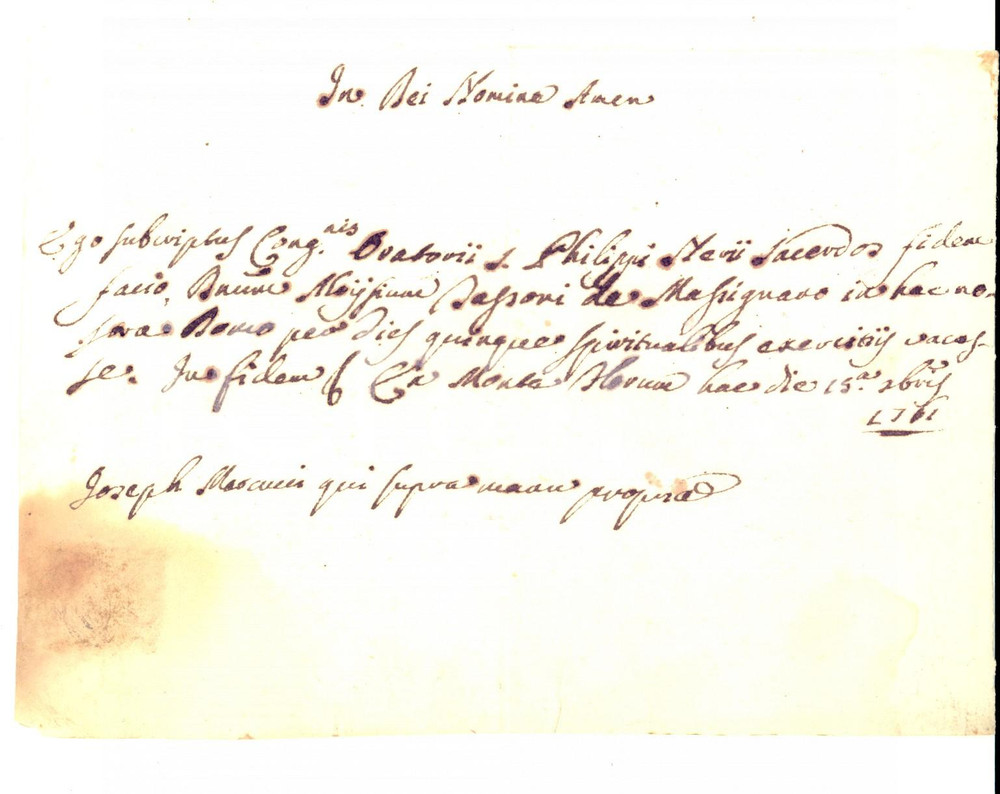 In Dei Nomine Amen
Ego subscriptus Cong.nis Oratorii S. Philippi Nerii Sacerdos fidem
facio, Dnum Aloysium Jassoni de Massignano in hac no-
stra Domo per dies quinque spiritualibus exercitijs vacas-
se. In fidem Ex Monte Florum hac die 15.a Xbris
1761
Joseph Marcucci qui supra manu propria